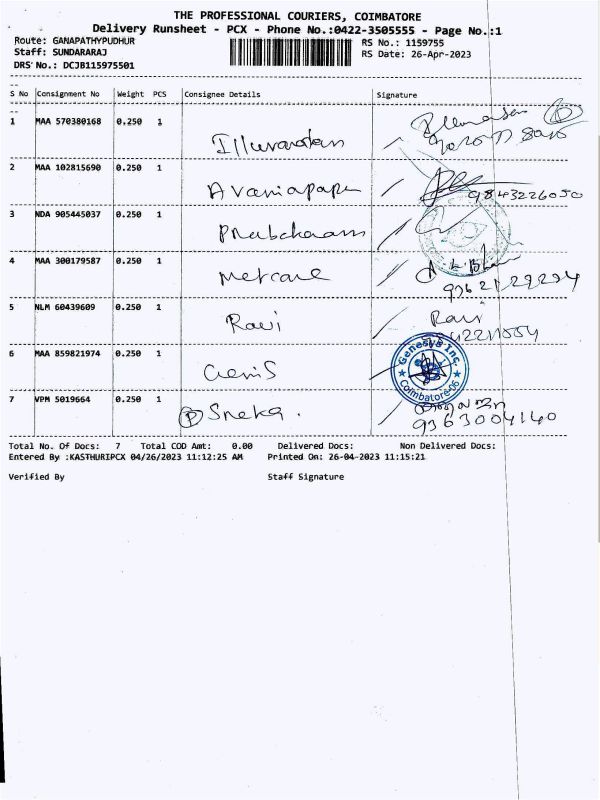 THE PROFESSIONAL COURIERS, COIMBATORE
Delivery Runsheet - PCX - Phone No.:0422-3505555 - Page No.:1
Route: GANAPATHYPUDHUR RS No.: 1159755
Staff: SUNDARARAJ RS Date: 26-Apr-2023
DRS No.: DCJB115975501
S No Consignment No Weight PCS Consignee Details Signature
1 MAA 570380168 0.250 1
2 MAA 102815690 0.250 1 9843226050
3 NDA 905445037 0.250 1
4 MAA 300179587 0.250 1
5 NLM 60439609 0.250 1 Ravi Ravi
6 MAA 859821974 0.250 1 Genesys Inc. Coimbatore-06
7 VPM 5019664 0.250 1 P Sneka. 9363004140
Total No. Of Docs: 7 Total COD Amt: 0.00 Delivered Docs: Non Delivered Docs:
Entered By :KASTHURIPCX 04/26/2023 11:12:25 AM Printed On: 26-04-2023 11:15:21
Verified By Staff Signature